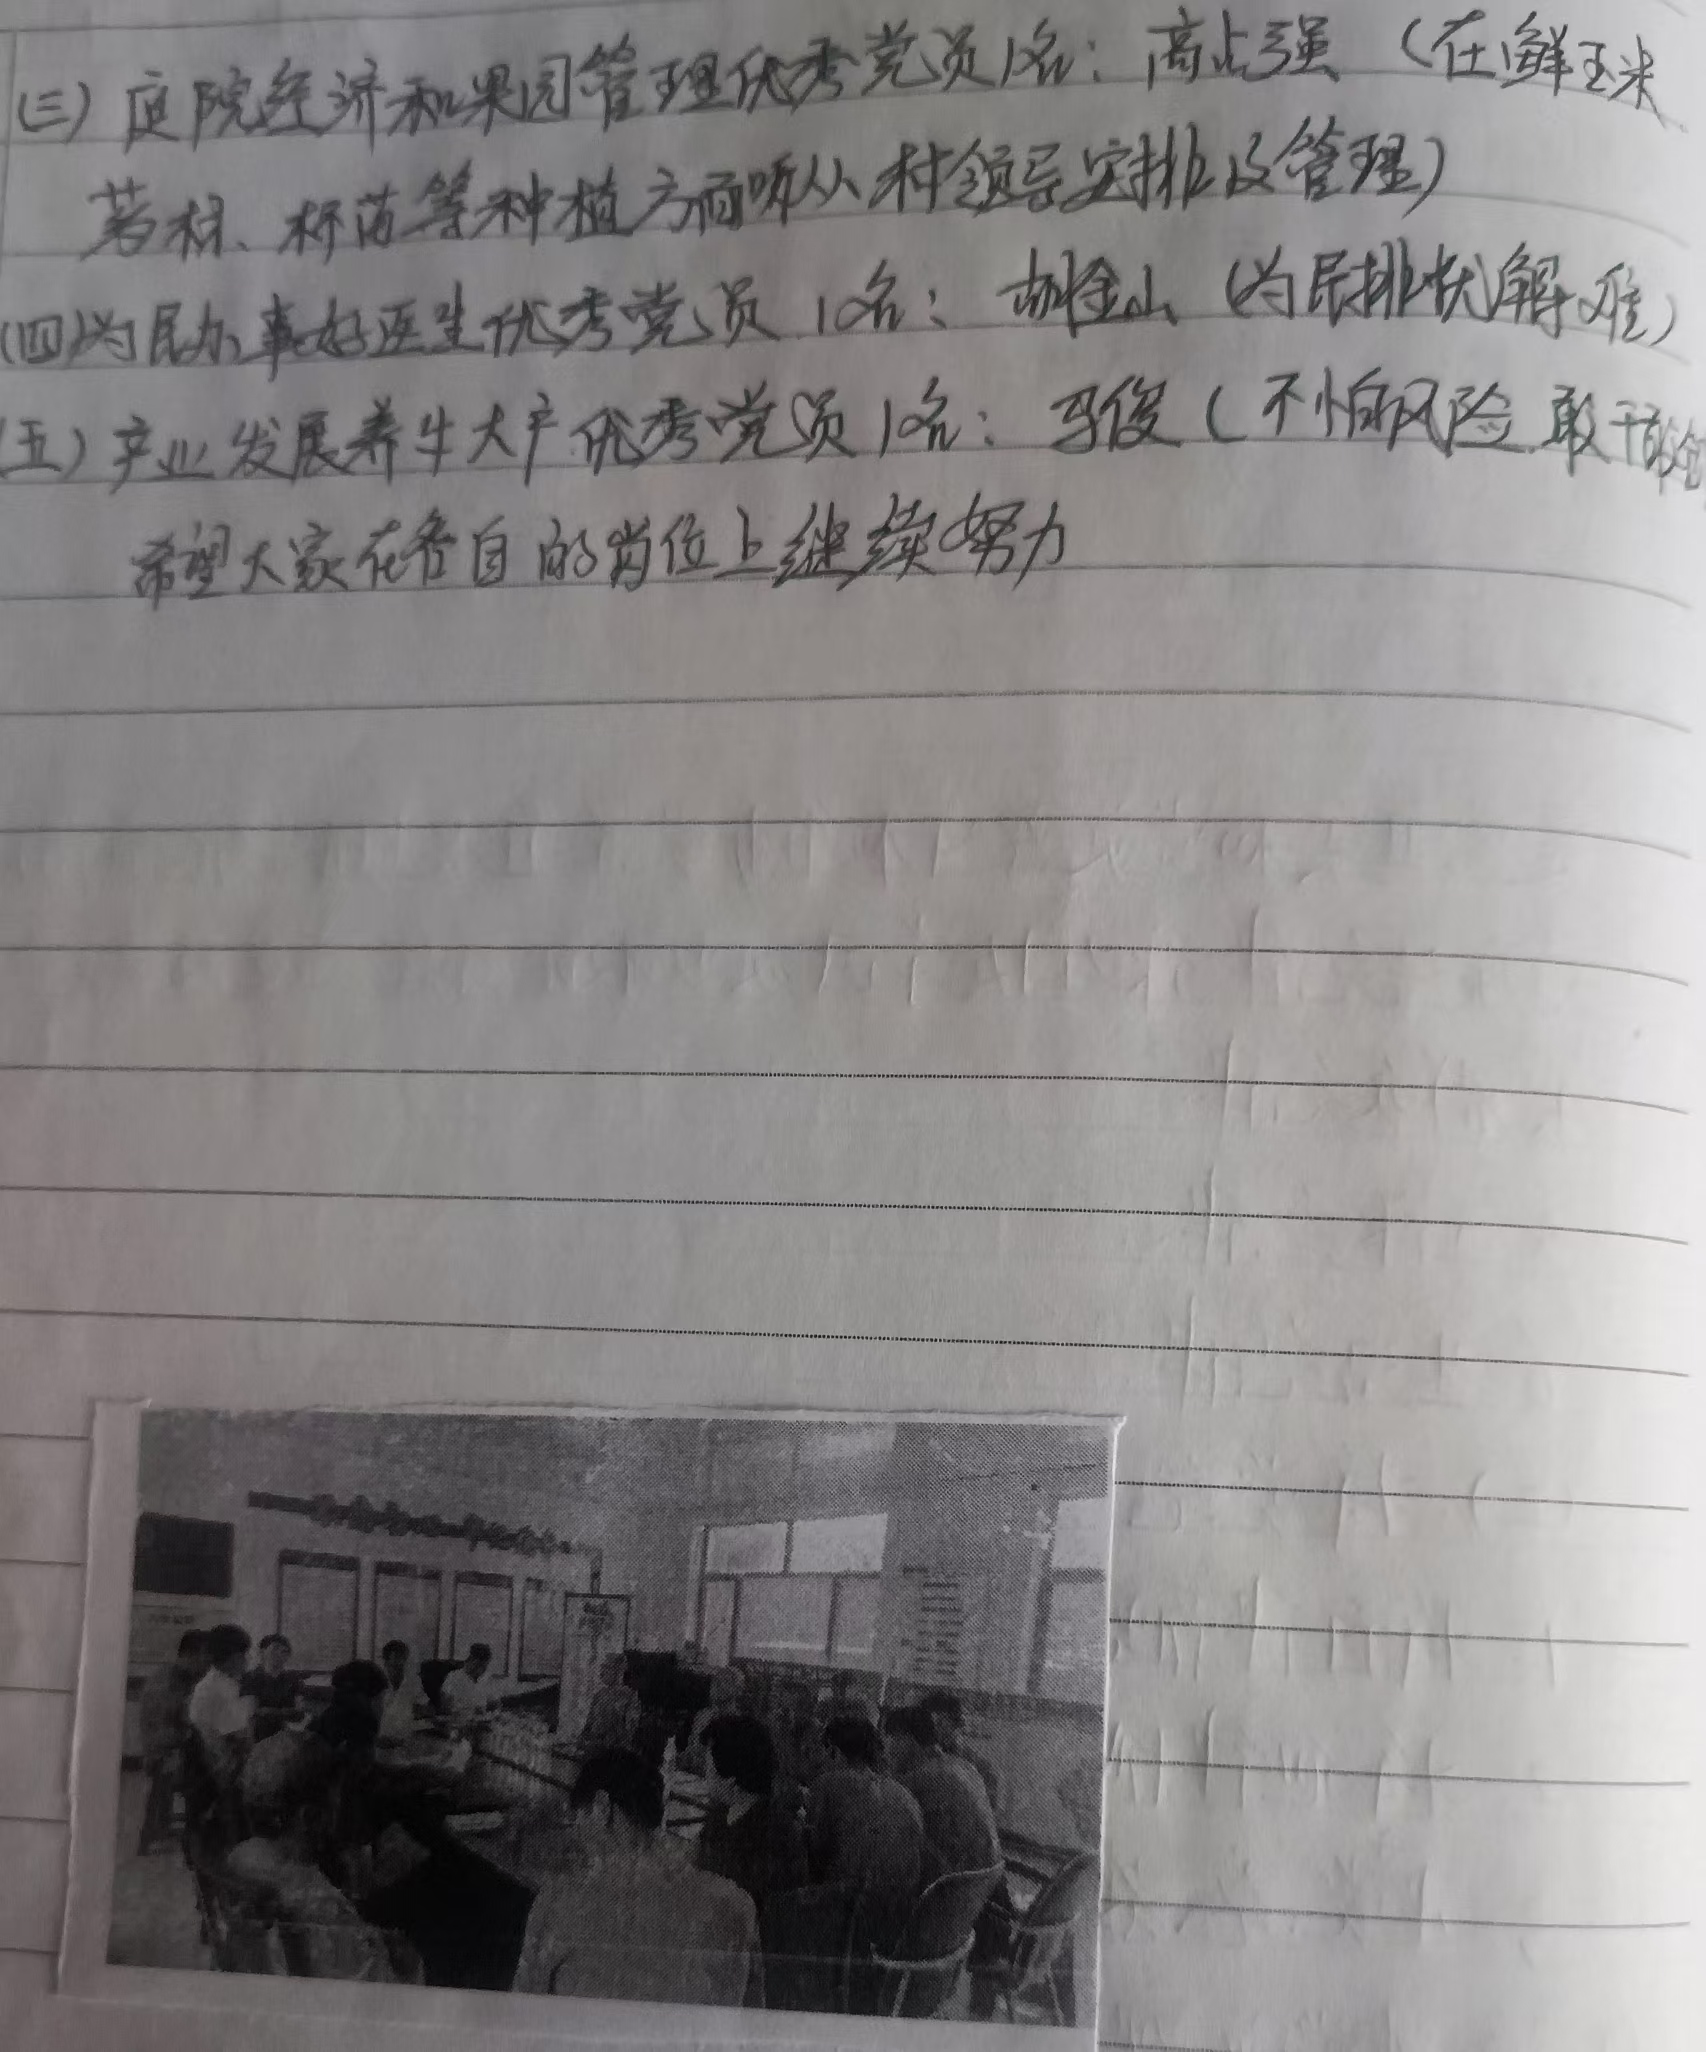 (三)庭院经济和果园管理优秀党员1名：高占强（在鲜玉米、
苕梳、杯苗等种植方面听从村领导安排及管理）
(四)为民办事好医生优秀党员1名：胡金山（为民排忧解难）
(五)产业发展养牛大户优秀党员1名：马俊（不怕风险敢干敢
希望大家在各自的岗位上继续努力